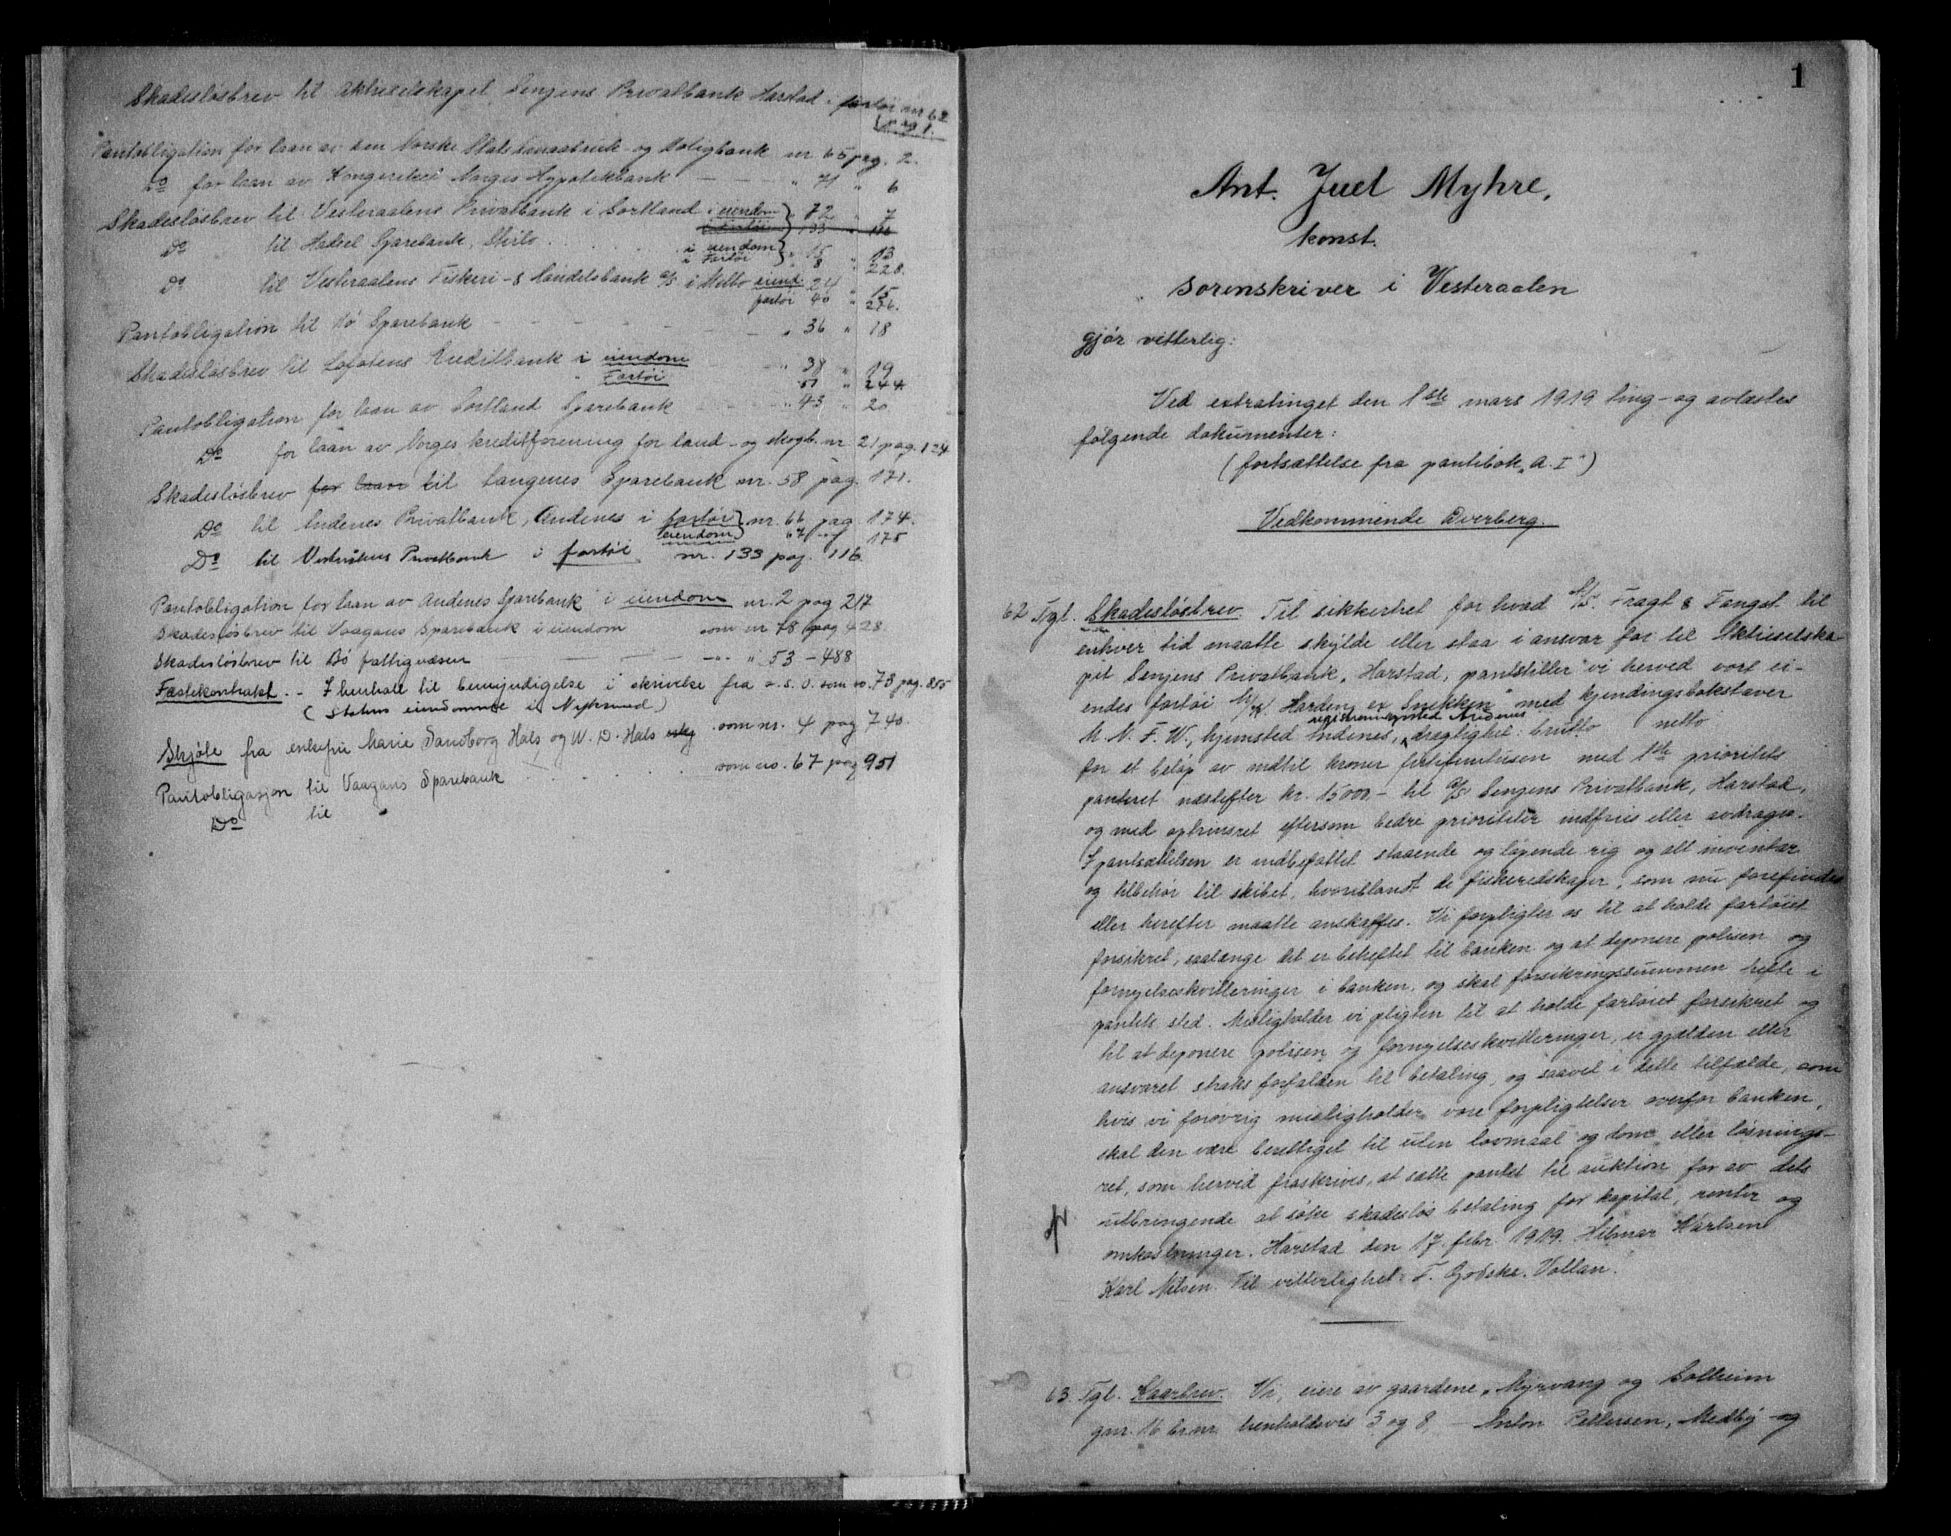 Skadesløsbrev til Aktieselskapet Senjens Privatbank Harstad i fartøi nr 62
pag 1.
Pantobligation for laan av den Norske Stats Smaabruk- og Boligbank nr 65 pag. 2.
Do for laan av Kongeriket Norges Hypotekbank — " 71 " 6
Skadesløsbrev til Vesteraalens Privatbank i Sortland i eiendom " 72 " 7
133 " 116
Do til Hadsel Sparebank, Stilo i eiendom " 15 " 13
i Fartøi " 8 " 228.
Do til Vesteraalens Fiskeri- & Handelsbank A/S i Melbo eiend. 24 " 15
fartøi 40 " 276.
Pantobligation til Bø Sparebank — " 36 " 18
Skadesløsbrev til Lofotens Kreditbank i eiendom " 38 " 19
" Fartøi 51 " 244
Pantobligation for laan av Sortland Sparebank " 43 " 20
Do for laan av Norges kreditforening for land- og skogb. nr 21 pag. 124
Skadesløsbrev for laan til Langenes Sparebank nr. 58 pag. 171.
Do til Andenes Privatbank, Andenes i fartøi nr. 66 pag 174.
eiendom 67 pag 175
Do til Vesteraalens Privatbank i fartøi nr. 133 pag. 116
Pantobligation for laan av Andenes Sparebank i eiendom nr. 2 pag 217
Skadesløsbrev til Vaagans Sparebank i eiendom som nr 78 pag 428.
Skadesløsbrev til Bø fattigvæsen — " " 53 - 488
Festekontrakt. - I henhold til bemyndigelse i skrivelse fra som no. 73 pag. 855
(Statens eiendomme i Nyksund)
Skjøte fra enkefru Marie Sandborg Hals og W. D. Hals som nr. 4 pag 740.
Pantobligasjon til Vaagans Sparebank som no. 67 pag 951
Do til
1
Ant. Juel Myhre,
konst.
sorenskriver i Vesteraalen
gjør vitterlig:
Ved extratinget den 1ste mars 1919 ting- og avlæstes
følgende dokumenter:
(fortsættelse fra pantebok "A. I")
Vedkommende Dverberg.
62 Tgl. Skadesløsbrev. Til sikkerhet for hvad A/S. Fragt & Fangst til
enhver tid maatte skylde eller staa i ansvar for til Aktieselska-
pet Senjens Privatbank, Harstad, pantstiller vi herved vort ei-
endes fartøi M/K. Harden ex Snekken med kjendingsbokstaver
M. N. F. W., hjemsted Andenes, registreringssted Andenes drægtighet: brutto netto
for et beløp av indtil kroner femtusen med 1ste prioritets
panteret næstefter kr. 15000.- til A/S Senjens Privatbank, Harstad,
og med optrinsret eftersom bedre prioriteter indfries eller avdrages.
I pantsættelsen er indbefattet staaende og løpende rig og alt inventar
og tilbehør til skibet, hvoriblandt de fiskeredskaper, som nu forefindes
eller herefter maatte anskaffes. Vi forpligter os til at holde fartøiet
forsikret, saalænge det er beheftet til banken og at deponere polisen og
fornyelseskvitteringer i banken, og skal forsikringssummen hefte i
pantets sted. Misligholder vi pligten til at holde fartøiet forsikret og
til at deponere polisen og fornyelseskvitteringer, er gjælden eller
ansvaret straks forfalden til betaling, og saavel i dette tilfælde, som
hvis vi forøvrig misligholder vore forpligtelser overfor banken,
skal den være berettiget til uten lovmaal og dom eller løsnings-
ret, som herved fraskrives, at sætte pantet til auktion for av dets
utbringende at søke skadesløs betaling for kapital, renter og
omkostninger. Harstad den 17. febr. 1919. Hilmar Karlsen
Karl Nilsen. Til vitterlighet: T. Godske. Vollan.
63 Tgl. Kaarbrev. Vi, eiere av gaardene, Myrvang og Solheim
gnr. 16 br.nr. henholdsvis 3 og 8, — Anton Pettersen, Medby og